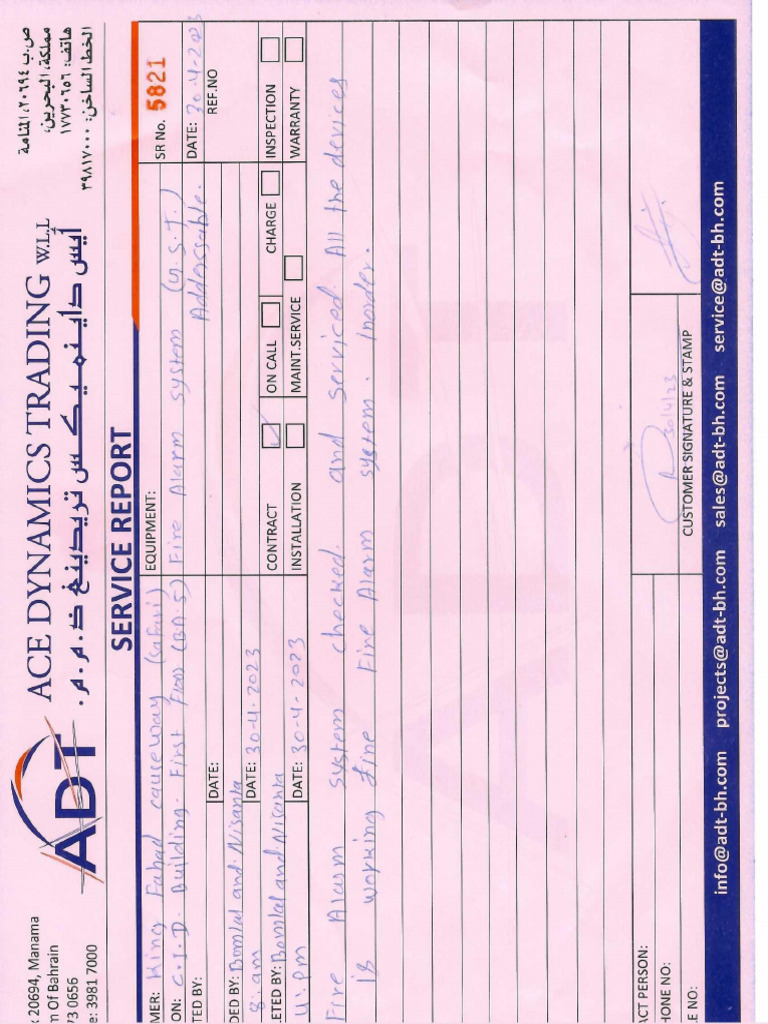 ACE DYNAMICS TRADING W.L.L
أيس داينميكس تريدينغ ذ.م.م.
ADT
20694, Manama
Of Bahrain
73 0656
e: 3981 7000
ص.ب ٢٠٦٩٤، المنامة
مملكة البحرين،
هاتف: ١٧٧٣٠٦٥٦
الخط الساخن: ٣٩٨١٧٠٠٠
SERVICE REPORT
MER: King Fahad causeway (Safari)
EQUIPMENT:
SR No. 5821
ON: C.I.D. Building. First Floor (BA.5)
Fire Alarm system (G.S.T.)
Adderssable.
DATE: 30-4-2023
TED BY:
DATE:
REF.NO
DED BY: Bomlal and Nisanta
8: am
DATE: 30-4-2023
CONTRACT
ON CALL
CHARGE
INSPECTION
ETED BY: Bomlal and Nisanta
4: pm
DATE: 30-4-2023
INSTALLATION
MAINT.SERVICE
WARRANTY
Fire Alarm system checked. and serviced. All the devices
is working fine Fire Alarm system. Inorder.
ACT PERSON:
HONE NO:
E NO:
30/4/23
CUSTOMER SIGNATURE & STAMP
info@adt-bh.com projects@adt-bh.com sales@adt-bh.com service@adt-bh.com